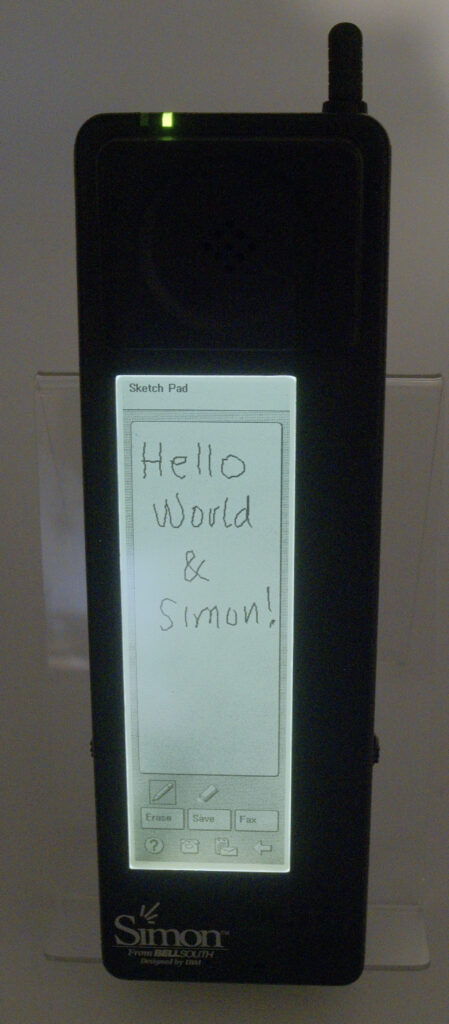 Sketch Pad
Hello
World
&
Simon!
Erase Save Fax
?
Simon™
From BELLSOUTH
Designed by IBM